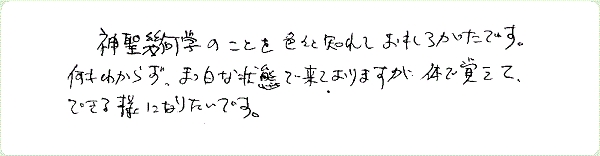 神聖幾何学のことを色々と知れておもしろかったです。
何もわからず、まっ白な状態で来ておりますが、体で覚えて、
できる様になりたいです。